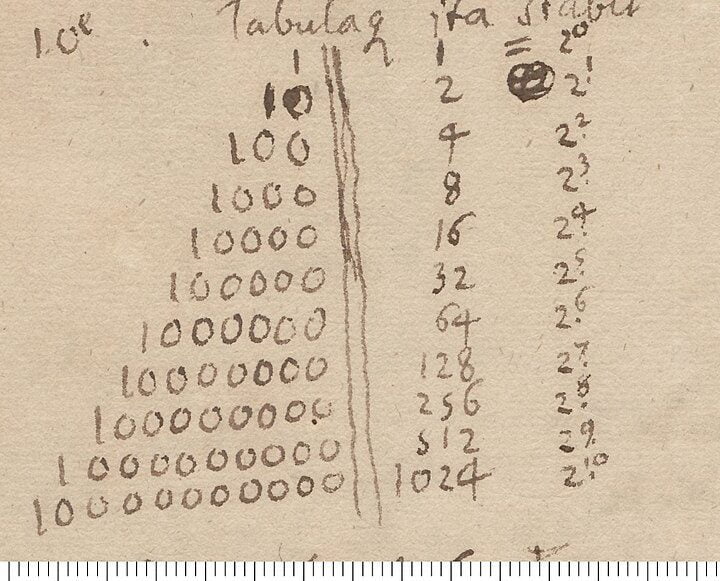 10^e . Tabulaq ita stabit
1 || 1 = 2^0
10 || 2 2^1
100 || 4 2^2
1000 || 8 2^3
10000 || 16 2^4
100000 || 32 2^5
1000000 || 64 2^6
10000000 || 128 2^7
100000000 || 256 2^8
1000000000 || 512 2^9
10000000000 || 1024 2^10